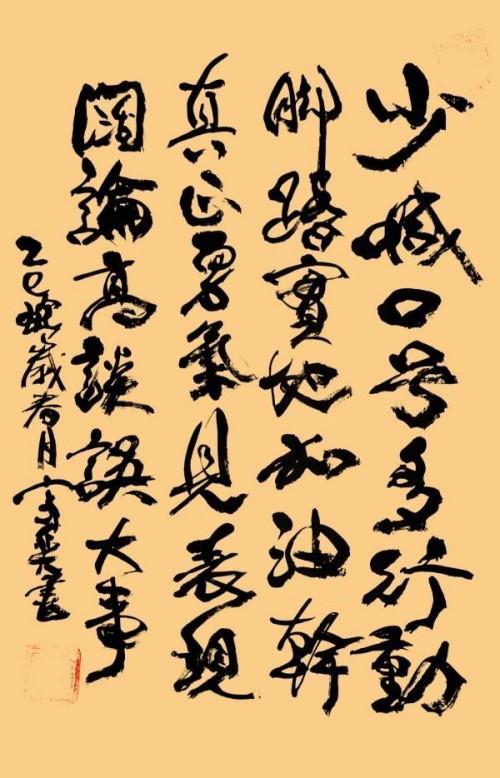 少喊口号多行動
脚踏實地加油幹
真正勇氣見表現
闊論高談誤大事
乙巳蛇嵗春月